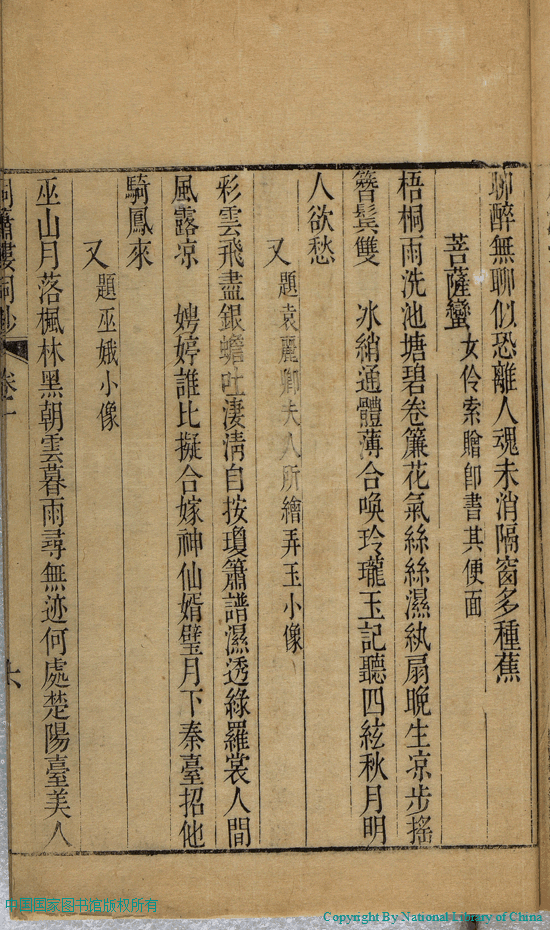 聊醉無聊似恐離人魂未消隔窗多種蕉
菩薩蠻 女伶索贈卽書其便面
梧桐雨洗池塘碧卷簾花氣絲絲濕紈扇晚生凉步搖
簪鬂雙 冰綃通體薄合喚玲瓏玉記聽四絃秋月明
人欲愁
又 題袁麗卿夫人所繪弄玉小像
彩雲飛盡銀蟾吐淒淸自按瓊簫譜濕透綠羅裳人間
風露凉 娉婷誰比擬合嫁神仙婿璧月下秦臺招他
騎鳳來
又 題巫娥小像
巫山月落楓林黑朝雲暮雨尋無迹何處楚陽臺美人
洞簫樓詞鈔 卷一 六
中国国家图书馆版权所有
Copyright By National Library of China